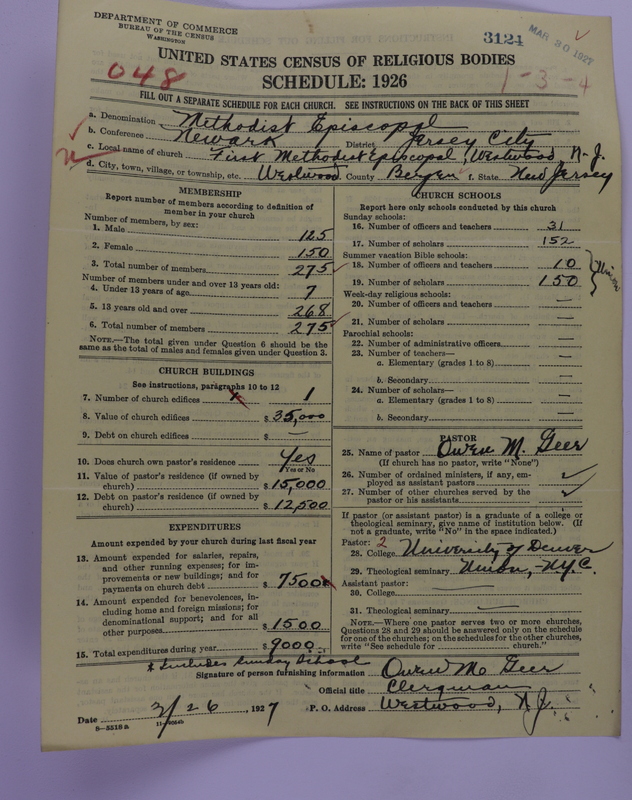 DEPARTMENT OF COMMERCE
BUREAU OF THE CENSUS
WASHINGTON
3124
MAR 30 1927
UNITED STATES CENSUS OF RELIGIOUS BODIES
048
SCHEDULE: 1926
1-3-4
FILL OUT A SEPARATE SCHEDULE FOR EACH CHURCH. SEE INSTRUCTIONS ON THE BACK OF THIS SHEET
a. Denomination Methodist Episcopal
b. Conference Newark District Jersey City
c. Local name of church First Methodist Episcopal, Westwood N.J.
d. City, town, village, or township, etc. Westwood County Bergen f. State New Jersey
MEMBERSHIP
Report number of members according to definition of member in your church
Number of members, by sex:
1. Male 125
2. Female 150
3. Total number of members 275
Number of members under and over 13 years old:
4. Under 13 years of age 7
5. 13 years old and over 268
6. Total number of members 275
NOTE.—The total given under Question 6 should be the same as the total of males and females given under Question 3.
CHURCH BUILDINGS
See instructions, paragraphs 10 to 12
7. Number of church edifices 1
8. Value of church edifices $ 35,000
9. Debt on church edifices $ —
10. Does church own pastor's residence Yes
Yes or No
11. Value of pastor's residence (if owned by church) $ 15,000
12. Debt on pastor's residence (if owned by church) $ 12,500
EXPENDITURES
Amount expended by your church during last fiscal year
13. Amount expended for salaries, repairs, and other running expenses; for improvements or new buildings; and for payments on church debt $ 7500
14. Amount expended for benevolences, including home and foreign missions; for denominational support; and for all other purposes $ 1500
15. Total expenditures during year $ 9000
* Includes Sunday School
CHURCH SCHOOLS
Report here only schools conducted by this church
Sunday schools:
16. Number of officers and teachers 31
17. Number of scholars 152
Summer vacation Bible schools:
18. Number of officers and teachers 10
19. Number of scholars 150
Union
Week-day religious schools:
20. Number of officers and teachers —
21. Number of scholars —
Parochial schools:
22. Number of administrative officers —
23. Number of teachers—
a. Elementary (grades 1 to 8) —
b. Secondary —
24. Number of scholars—
a. Elementary (grades 1 to 8) —
b. Secondary —
PASTOR
25. Name of pastor Owen M. Geer
(If church has no pastor, write "None")
26. Number of ordained ministers, if any, employed as assistant pastors
27. Number of other churches served by the pastor or his assistants
If pastor (or assistant pastor) is a graduate of a college or theological seminary, give name of institution below. (If not a graduate, write "No" in the space indicated.)
Pastor: 2
28. College University of Denver
29. Theological seminary Union, N.Y.C.
Assistant pastor:
30. College —
31. Theological seminary —
NOTE.—Where one pastor serves two or more churches, Questions 28 and 29 should be answered only on the schedule for one of the churches; on the schedules for the other churches, write "See schedule for church."
Signature of person furnishing information Owen M. Geer
Official title Clergyman
Date 3/26, 1927 P. O. Address Westwood, N.J.
8—5518a